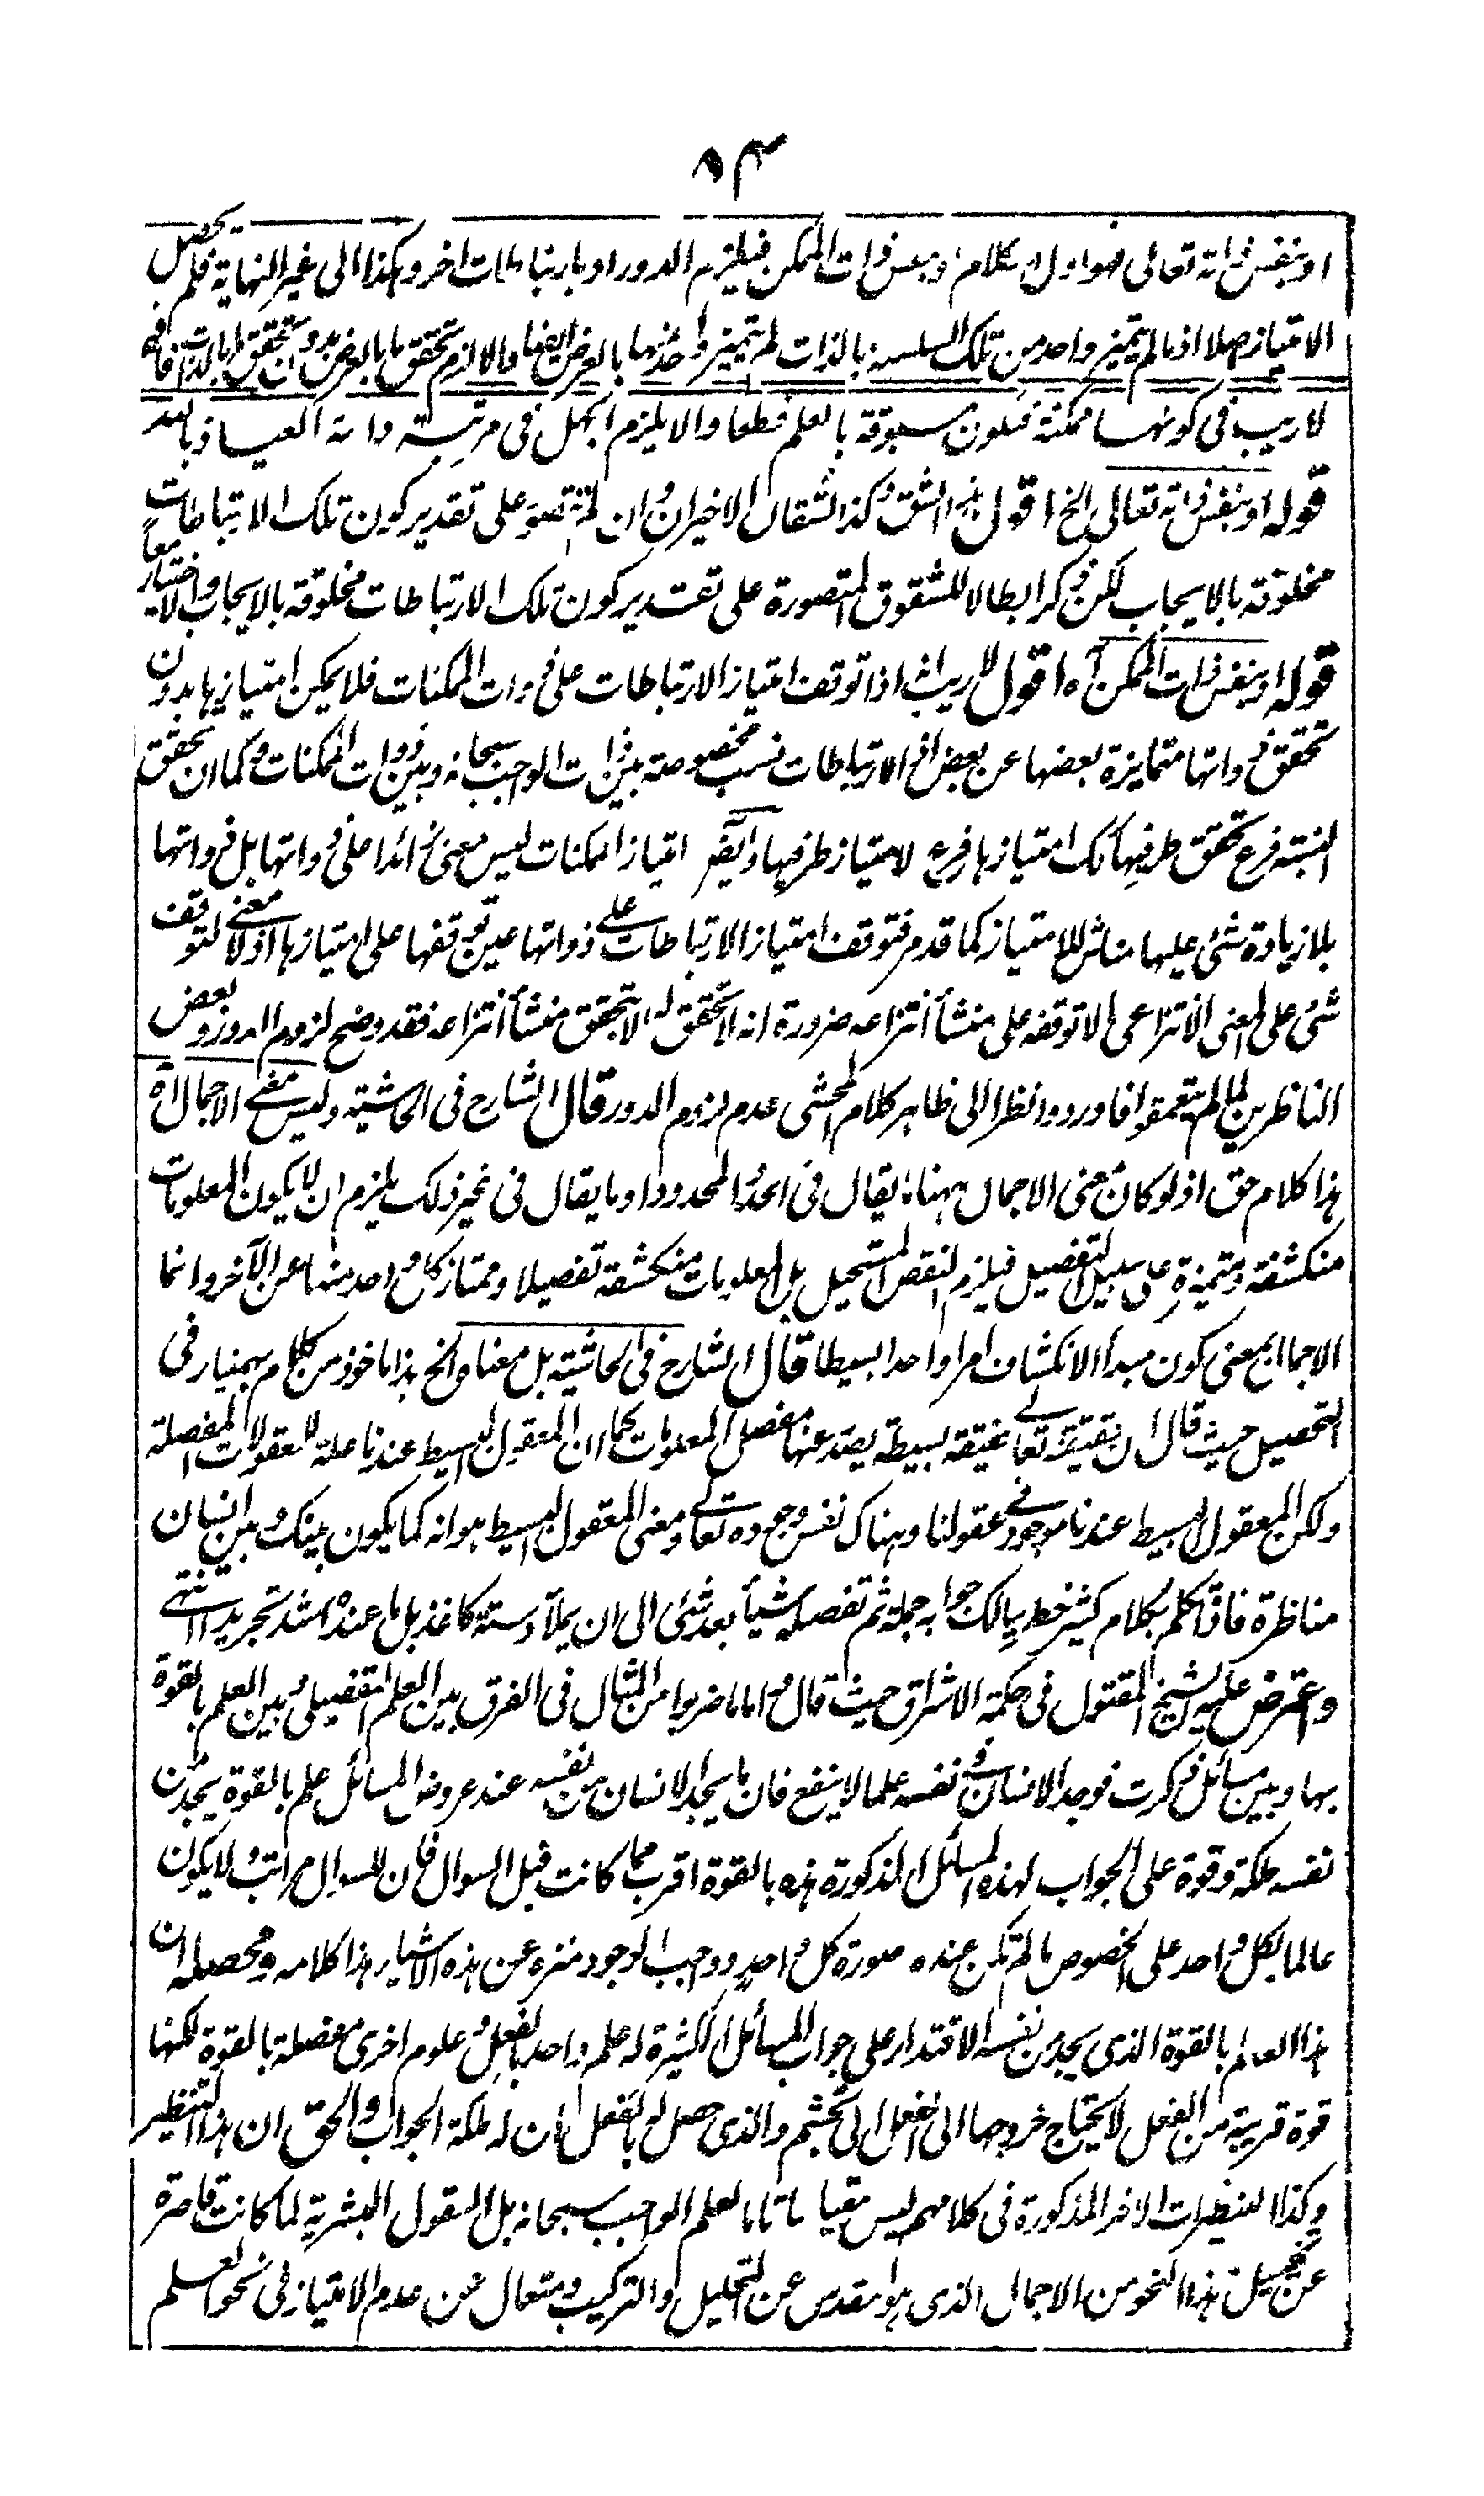 ٨٣
او بنفس ذاته تعالى فهو اول الكلام او بنفس ذات الممكن فيلزم الدور او بارتباطات اخر وهكذا الى غير النهاية فلم يحصل
الامتياز اصلا اذ ما لم يتميز واحد من تلك السلسلة بالذات لم يتميز واحد منها بالعرض ايضا والا لزم تحقق ما بالعرض بدون تحقق ما بالذات فافهم
لا ريب فى كونها ممكنة فتكون مسبوقة بالعلم قطعا والا يلزم الجهل فى مرتبة ذاته العياذ بالله
قوله او بنفس ذاته تعالى الخ اقول هذا الشق وكذا الشقان الاخيران وان لم يتصور على تقدير كون تلك الارتباطات
مخلوقة بالايجاب لكن ذكر ابطالا للشقوق المتصورة على تقدير كون تلك الارتباطات مخلوقة بالايجاب والاختيار معا
قوله او بنفس ذات الممكن آه اقول لا ريب انه اذا توقف امتياز الارتباطات على ذوات الممكنات فلا يمكن امتيازها بدون
تحقق ذواتها متمايزة بعضها عن بعض اذ الارتباطات نسب مخصوصة بين ذات الواجب سبحانه وبين ذوات الممكنات وكما ان تحقق
النسبة فرع تحقق طرفيها كذلك امتيازها فرع لامتياز طرفيها وايضا امتياز الممكنات ليس معنى زائدا على ذواتها بل ذواتها
بلا زيادة شئ عليها مناش للامتياز كما قدم فتوقف امتياز الارتباطات على ذواتها عين توقفها على امتيازها اذ لا معنى لتوقف
شئ على المعنى الانتزاعى الا توقفه على منشأ انتزاعه ضرورة انه لا تحقق له الا بتحقق منشأ انتزاعه فقد وضح لزوم الدور وبعض
الناظرين لما لم يتعمقوا فاوردوا نظرا الى ظاهر كلام المحشى عدم لزوم الدور قال الشارح فى الحاشية وليس معنى الاجمال آه
هذا كلام حق اذ لو كان معنى الاجمال ههنا ما يقال فى الحد والمحدود او ما يقال فى غير ذلك يلزم ان لا يكون المعلومات
منكشفة ومتميزة على سبيل التفصيل فيلزم النقص المستحيل بل المعلومات منكشفة تفصيلا وممتاز كل واحد منها عن الآخر وانما
الاجمال بمعنى كون مبدأ الانكشاف امرا واحدا بسيطا قال الشارح فى الحاشية بل معناه الخ هذا ماخوذ من كلام بهمنيار فى
التحصيل حيث قال ان حقيقته تعالى حقيقة بسيطة يصدر عنها مفصل المعلومات كما ان المعقول البسيط عندنا علة للمعقولات المفصلة
ولكن المعقول البسيط عندنا موجود فى عقولنا وهناك نفس وجوده تعالى ومعنى المعقول البسيط هو انه كما يكون بينك وبين انسان
مناظرة فاذا تكلم بكلام كثير خطر ببالك جوابه جملة ثم تفصله شيأ بعد شئ الى ان يملأ دستة كاغذ بل ما عنده اشد تجريدا انتهى
واعترض عليه الشيخ المقتول فى حكمة الاشراق حيث قال واما ما ضربوا من المثال فى الفرق بين العلم التفصيلى وبين العلم بالقوة
بها وبين مسائل ذكرت فوجد الانسان فى نفسه علما لا ينفع فان ما يجد الانسان من نفسه عند عروض المسائل علم بالقوة يجد من
نفسه ملكة وقوة على الجواب لهذه المسائل المذكورة هذه بالقوة اقرب مما كانت قبل السوال فان للسوال مراتب ولا يكون
عالما بكل واحد على الخصوص ما لم تكن عنده صورة كل واحد وواجب الوجود منزه عن هذه الاشياء هذا كلامه ومحصله ان
هذا العالم بالقوة الذى يجد من نفسه الاقتدار على جواب المسائل الكثيرة له علم واحد بالفعل وعلوم اخرى مفصلة بالقوة لكنها
قوة قريبة من الفعل لا يحتاج خروجها الى الفعل الى تجشم والذى حصل له بالفعل ان له ملكة الجواب والحق ان هذا التنظير
وكذا التنظيرات الاخر المذكورة فى كلامهم ليس مقياسا تاما لعلم الواجب سبحانه بل العقول البشرية لما كانت قاصرة
عن تحصيل هذا النحو من الاجمال الذى هو مقدس عن التحليل والتركيب ومتعال عن عدم الامتياز فى نحو العلم